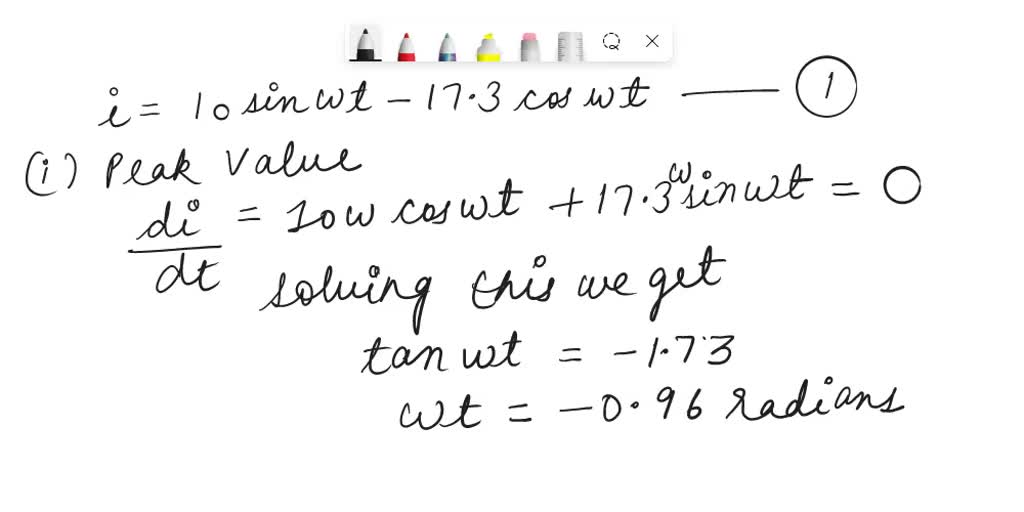 i = 10 sin wt - 17.3 cos wt —— ①
(i) Peak Value
di/dt = 10w cos wt + 17.3 w sin wt = 0
solving this we get
tan wt = -1.73
wt = -0.96 radians